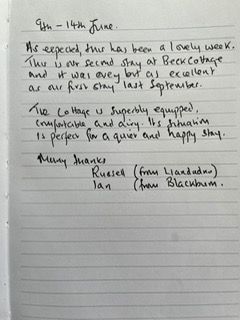 9th - 14th June.
As expected, this has been a lovely week.
This is our second stay at Beck Cottage
and it was every bit as excellent
as our first stay last September.
The Cottage is superbly equipped,
comfortable and airy. Its situation
is perfect for a quiet and happy stay.
Many thanks
Russell (from Llandudno)
Ian (from Blackburn.